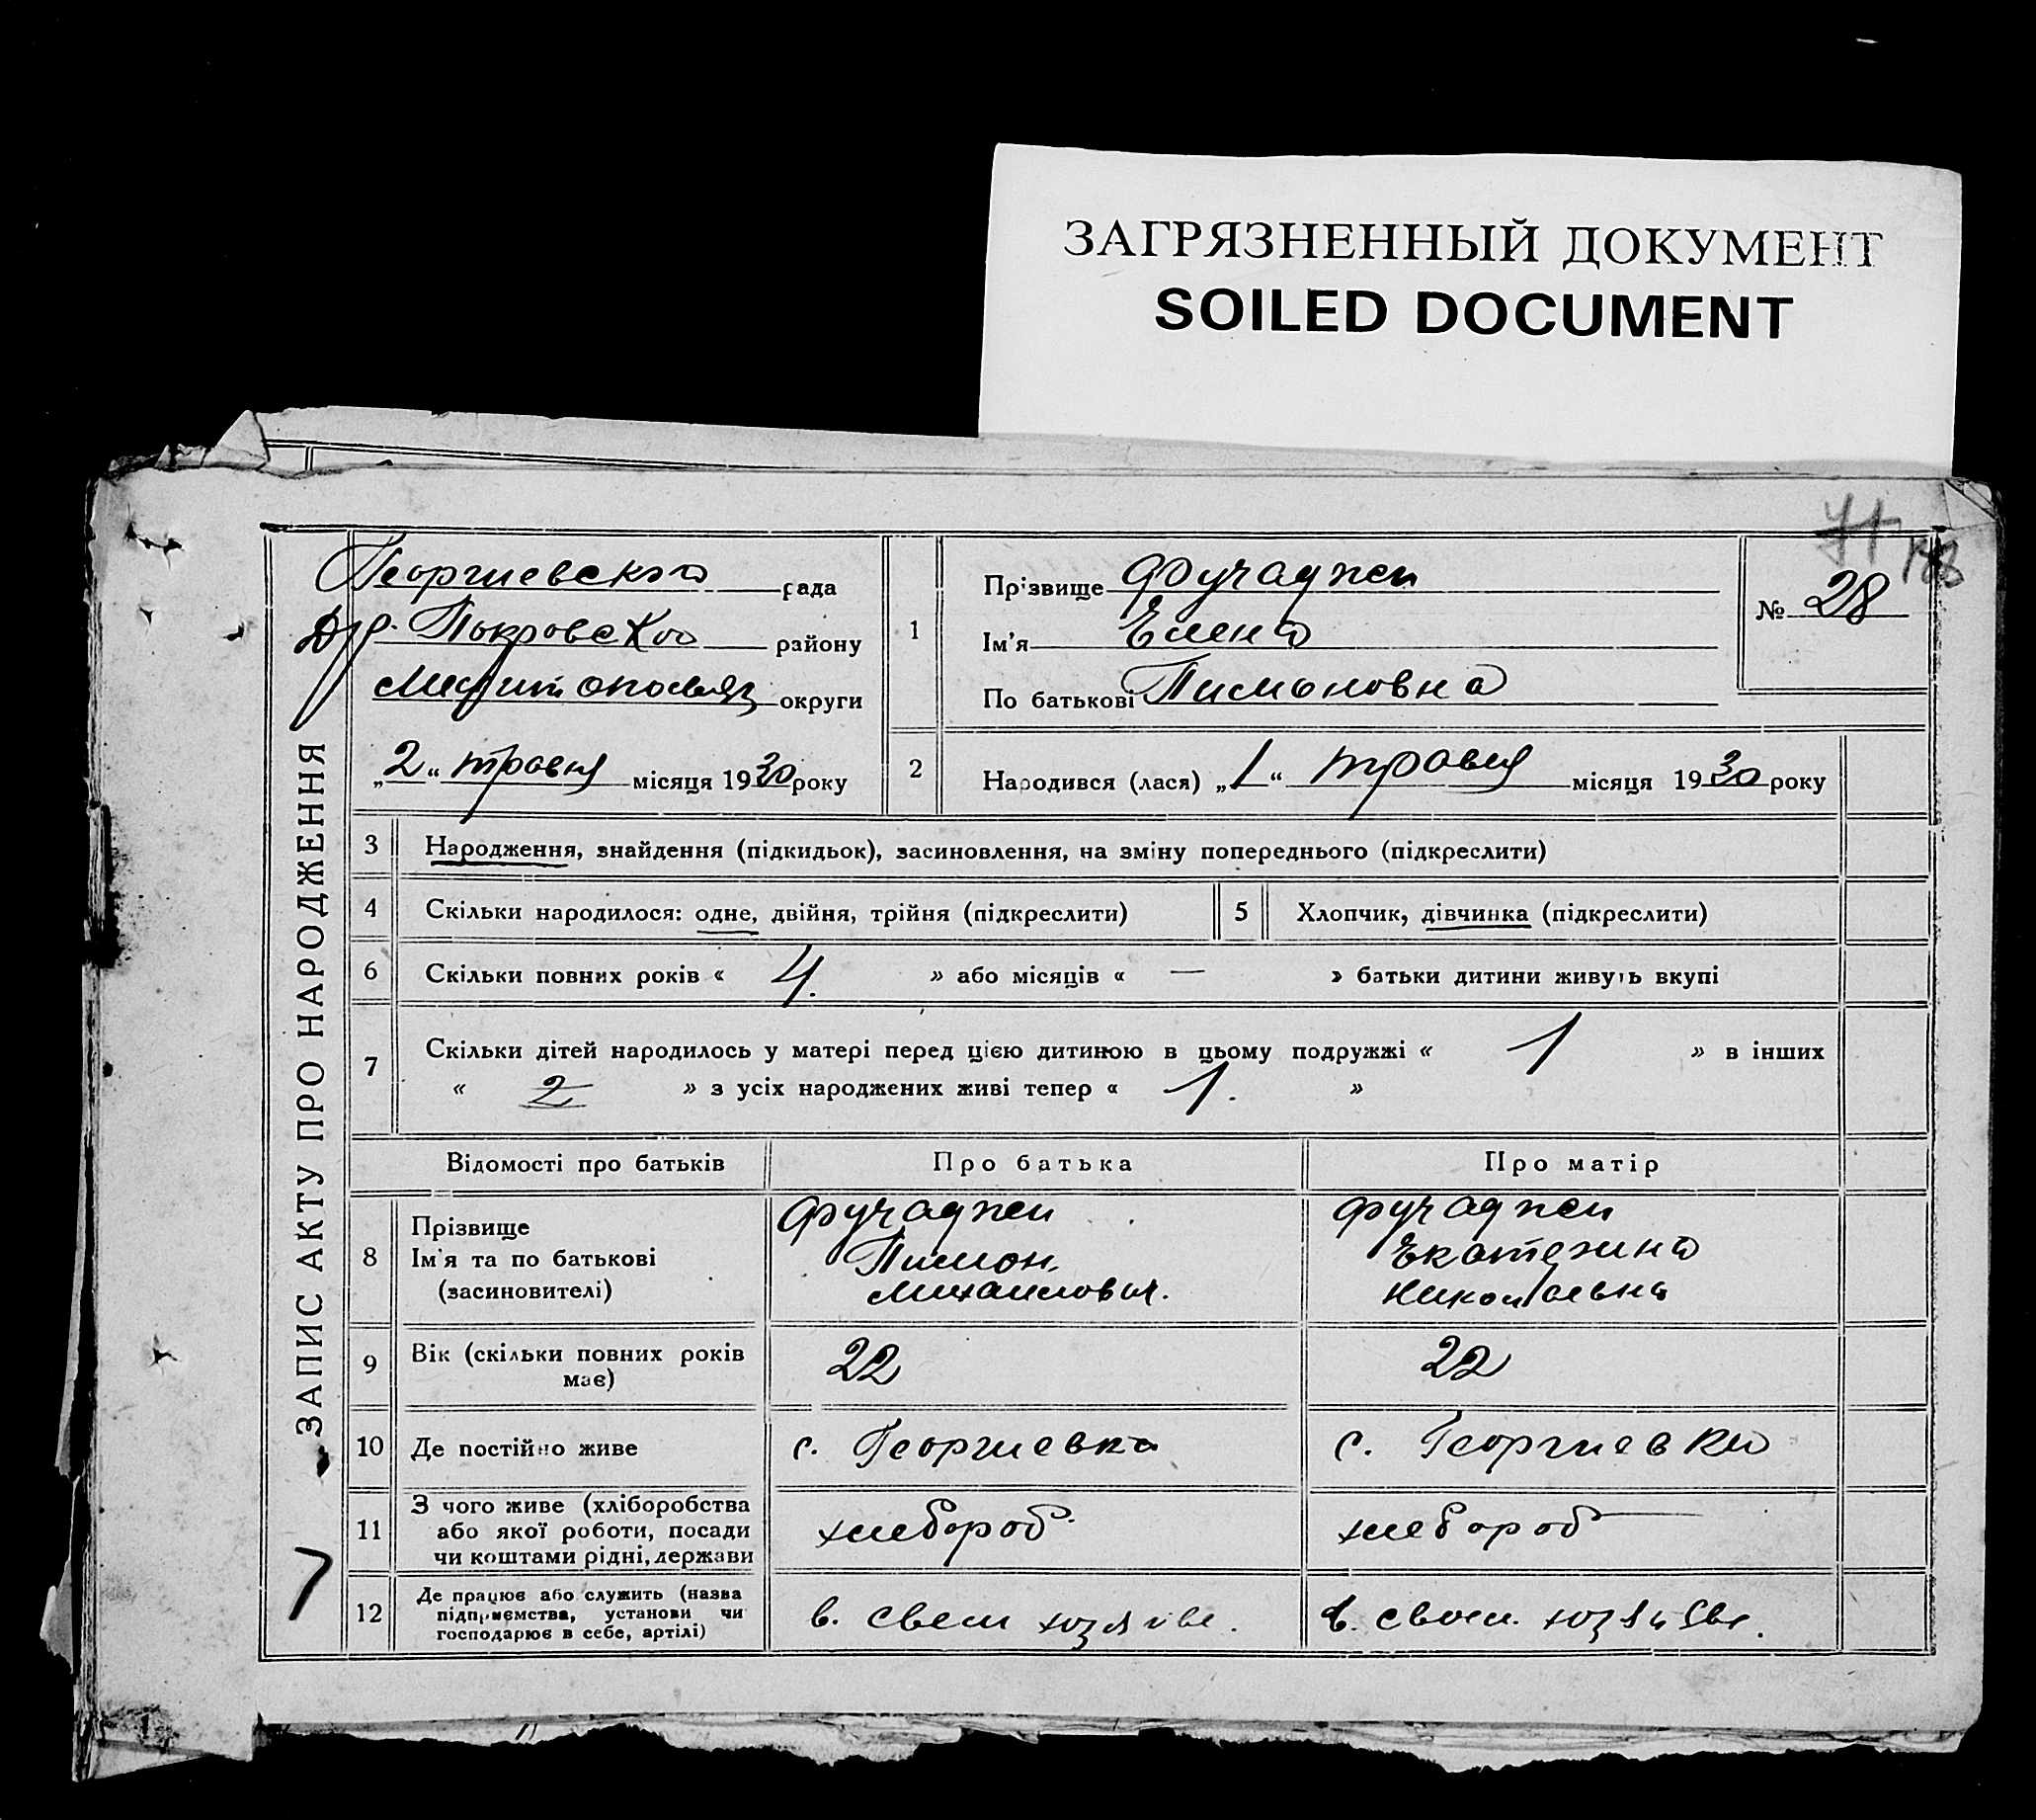 ЗАГРЯЗНЕННЫЙ ДОКУМЕНТ
SOILED DOCUMENT
188
ЗАПИС АКТУ ПРО НАРОДЖЕННЯ
7
Георгиевская рада
Покровского району
округи
„2“ травня місяця 1930 року
1
Прізвище Фучаджи
Ім'я Елена
По батькові Пимоновна
№ 28
2
Народився (лася) „1“ травня місяця 1930 року
3 Народження, знайдення (підкидьок), засиновлення, на зміну попереднього (підкреслити)
4 Скільки народилося: одне, двійня, трійня (підкреслити)
5 Хлопчик, дівчинка (підкреслити)
6 Скільки повних років « 4. » або місяців « — » батьки дитини живуть вкупі
7 Скільки дітей народилось у матері перед цією дитиною в цьому подружжі « 1 » в інших
« 2 » з усіх народжених живі тепер « 1. »
Відомості про батьків Про батька Про матір
8
Прізвище
Ім'я та по батькові
(засиновителі)
Фучаджи
Пимон
Михайлович.
Фучаджи
Екатерина
Николаевна
9 Вік (скільки повних років
має)
22
22
10 Де постійно живе с. Георгиевка с. Георгиевка
11
З чого живе (хліборобства
або якої роботи, посади
чи коштами рідні, держави
хлебороб
хлебороб
12
Де працює або служить (назва
підприємства, установи чи
господарює в себе, артілі)
в. свем
в. своем.